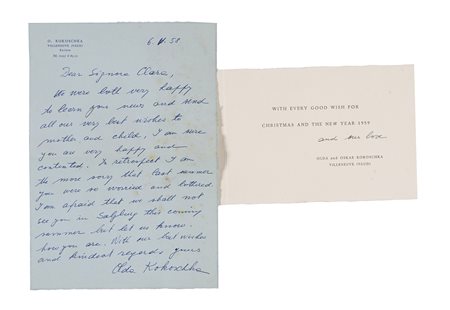 O. KOKOSCHKA
VILLENEUVE (VAUD)
6. V. 58
Dear Signora Clara,
We were both very happy
to learn your news and send
all our very best wishes to
mother and child, I am sure
you are very happy and
contented. In retrospect I am
the more sorry that last summer
you were so worried and bothered.
I am afraid that we shall not
see you in Salzburg this coming
summer but let us know
how you are. With our best wishes
and kindest regards yours
Olda Kokoschka
WITH EVERY GOOD WISH FOR
CHRISTMAS AND THE NEW YEAR 1959
and our love
OLDA and OSKAR KOKOSCHKA
VILLENEUVE (VAUD)